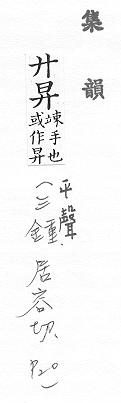 集韻
廾昇
竦手也
或作昇
(平聲
三鍾、居容切、P20)